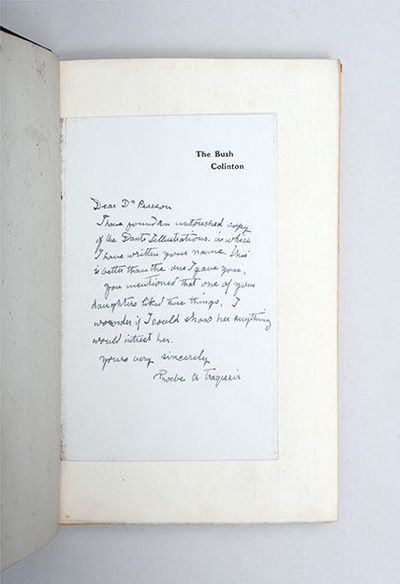 The Bush
Colinton
Dear Dr Pearson
I have found an untouched copy
of the Dante Illustrations in which
I have written your name. This
is better than the one I gave you.
you mentioned that one of your
daughters liked these things, I
wonder if I could show her anything
would interest her.
yours very sincerely
Phoebe A Traquair